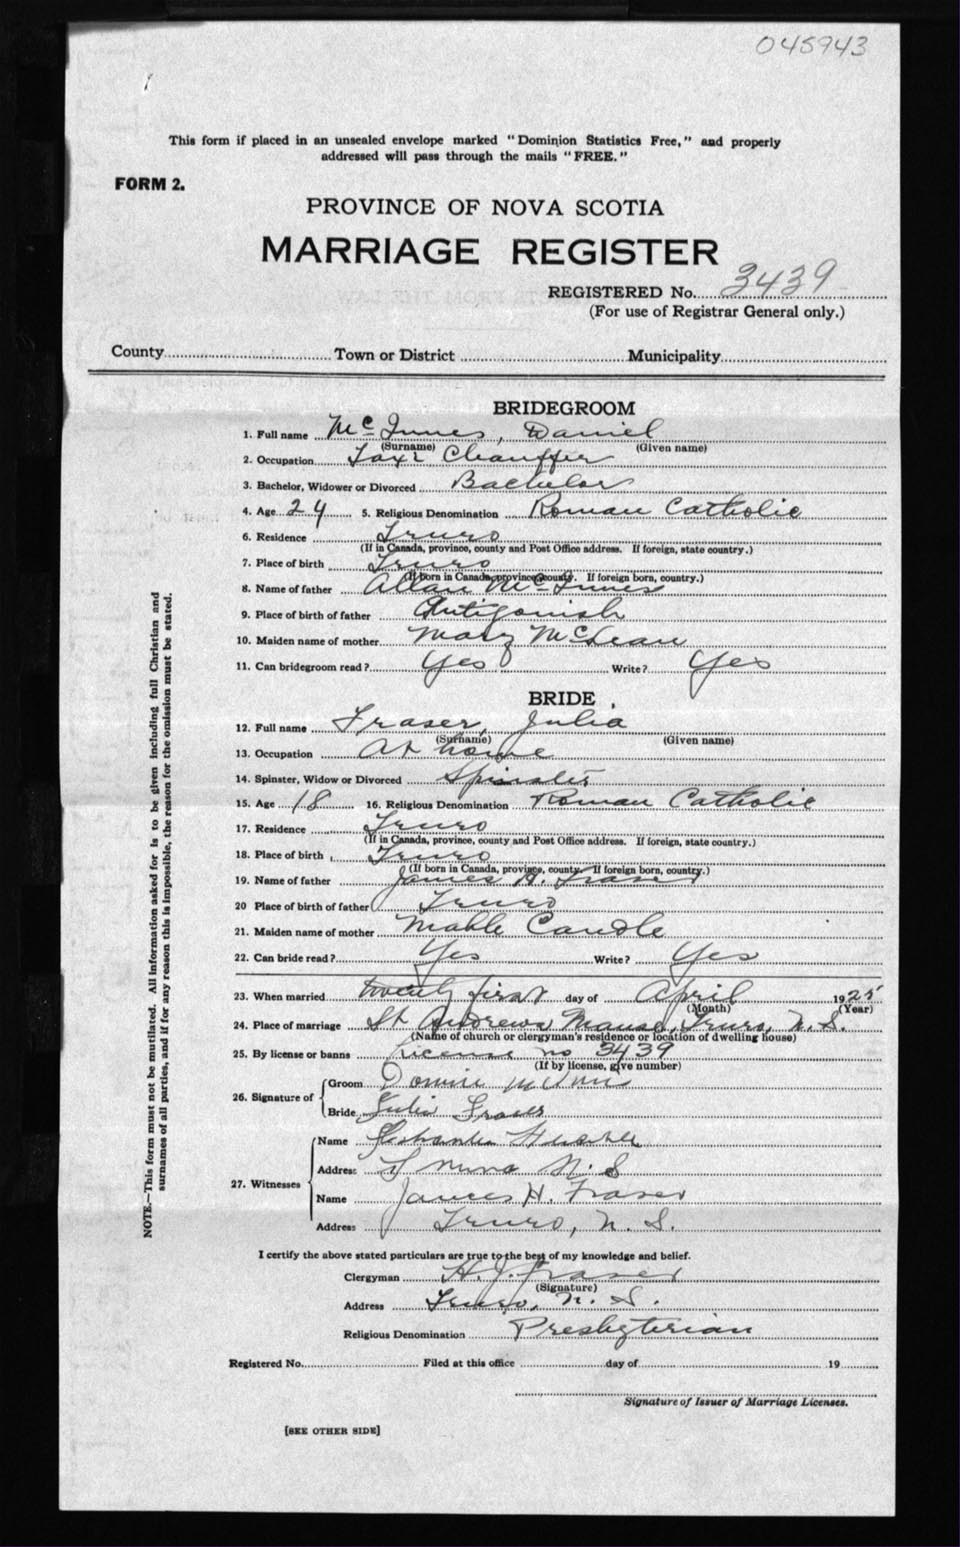 045943
This form if placed in an unsealed envelope marked "Dominion Statistics Free," and properly
addressed will pass through the mails "FREE."
FORM 2.
PROVINCE OF NOVA SCOTIA
MARRIAGE REGISTER
REGISTERED No. 3439
(For use of Registrar General only.)
County Town or District Municipality
BRIDEGROOM
1. Full name McInnes, Daniel
(Surname) (Given name)
2. Occupation Taxi Chauffer
3. Bachelor, Widower or Divorced Bachelor
4. Age 24 5. Religious Denomination Roman Catholic
6. Residence Truro
(If in Canada, province, county and Post Office address. If foreign, state country.)
7. Place of birth Truro
(If born in Canada, province, county. If foreign born, country.)
8. Name of father Allan McInnes
9. Place of birth of father Antigonish
10. Maiden name of mother Mary McLean
11. Can bridegroom read? Yes Write? Yes
BRIDE
12. Full name Fraser, Julia
(Surname) (Given name)
13. Occupation At home
14. Spinster, Widow or Divorced Spinster
15. Age 18 16. Religious Denomination Roman Catholic
17. Residence Truro
(If in Canada, province, county and Post Office address. If foreign, state country.)
18. Place of birth Truro
(If born in Canada, province, county. If foreign born, country.)
19. Name of father James H. Fraser
20 Place of birth of father Truro
21. Maiden name of mother Mable Caudle
22. Can bride read? Yes Write? Yes
23. When married twenty first day of April 1925
(Month) (Year)
24. Place of marriage St Andrews Manse, Truro, N.S.
(Name of church or clergyman's residence or location of dwelling house)
25. By license or banns License no 3439
(If by license, give number)
26. Signature of
Groom
Bride Julia Fraser
27. Witnesses
Name
Address N.S
Name James H. Fraser
Address Truro, N.S.
I certify the above stated particulars are true to the best of my knowledge and belief.
Clergyman H. J. Fraser
(Signature)
Address Truro, N.S.
Religious Denomination Presbyterian
Registered No. Filed at this office day of 19
Signature of Issuer of Marriage Licenses.
[SEE OTHER SIDE]
NOTE.—This form must not be mutilated. All information asked for is to be given including full Christian and
surnames of all parties, and if for any reason this is impossible, the reason for the omission must be stated.